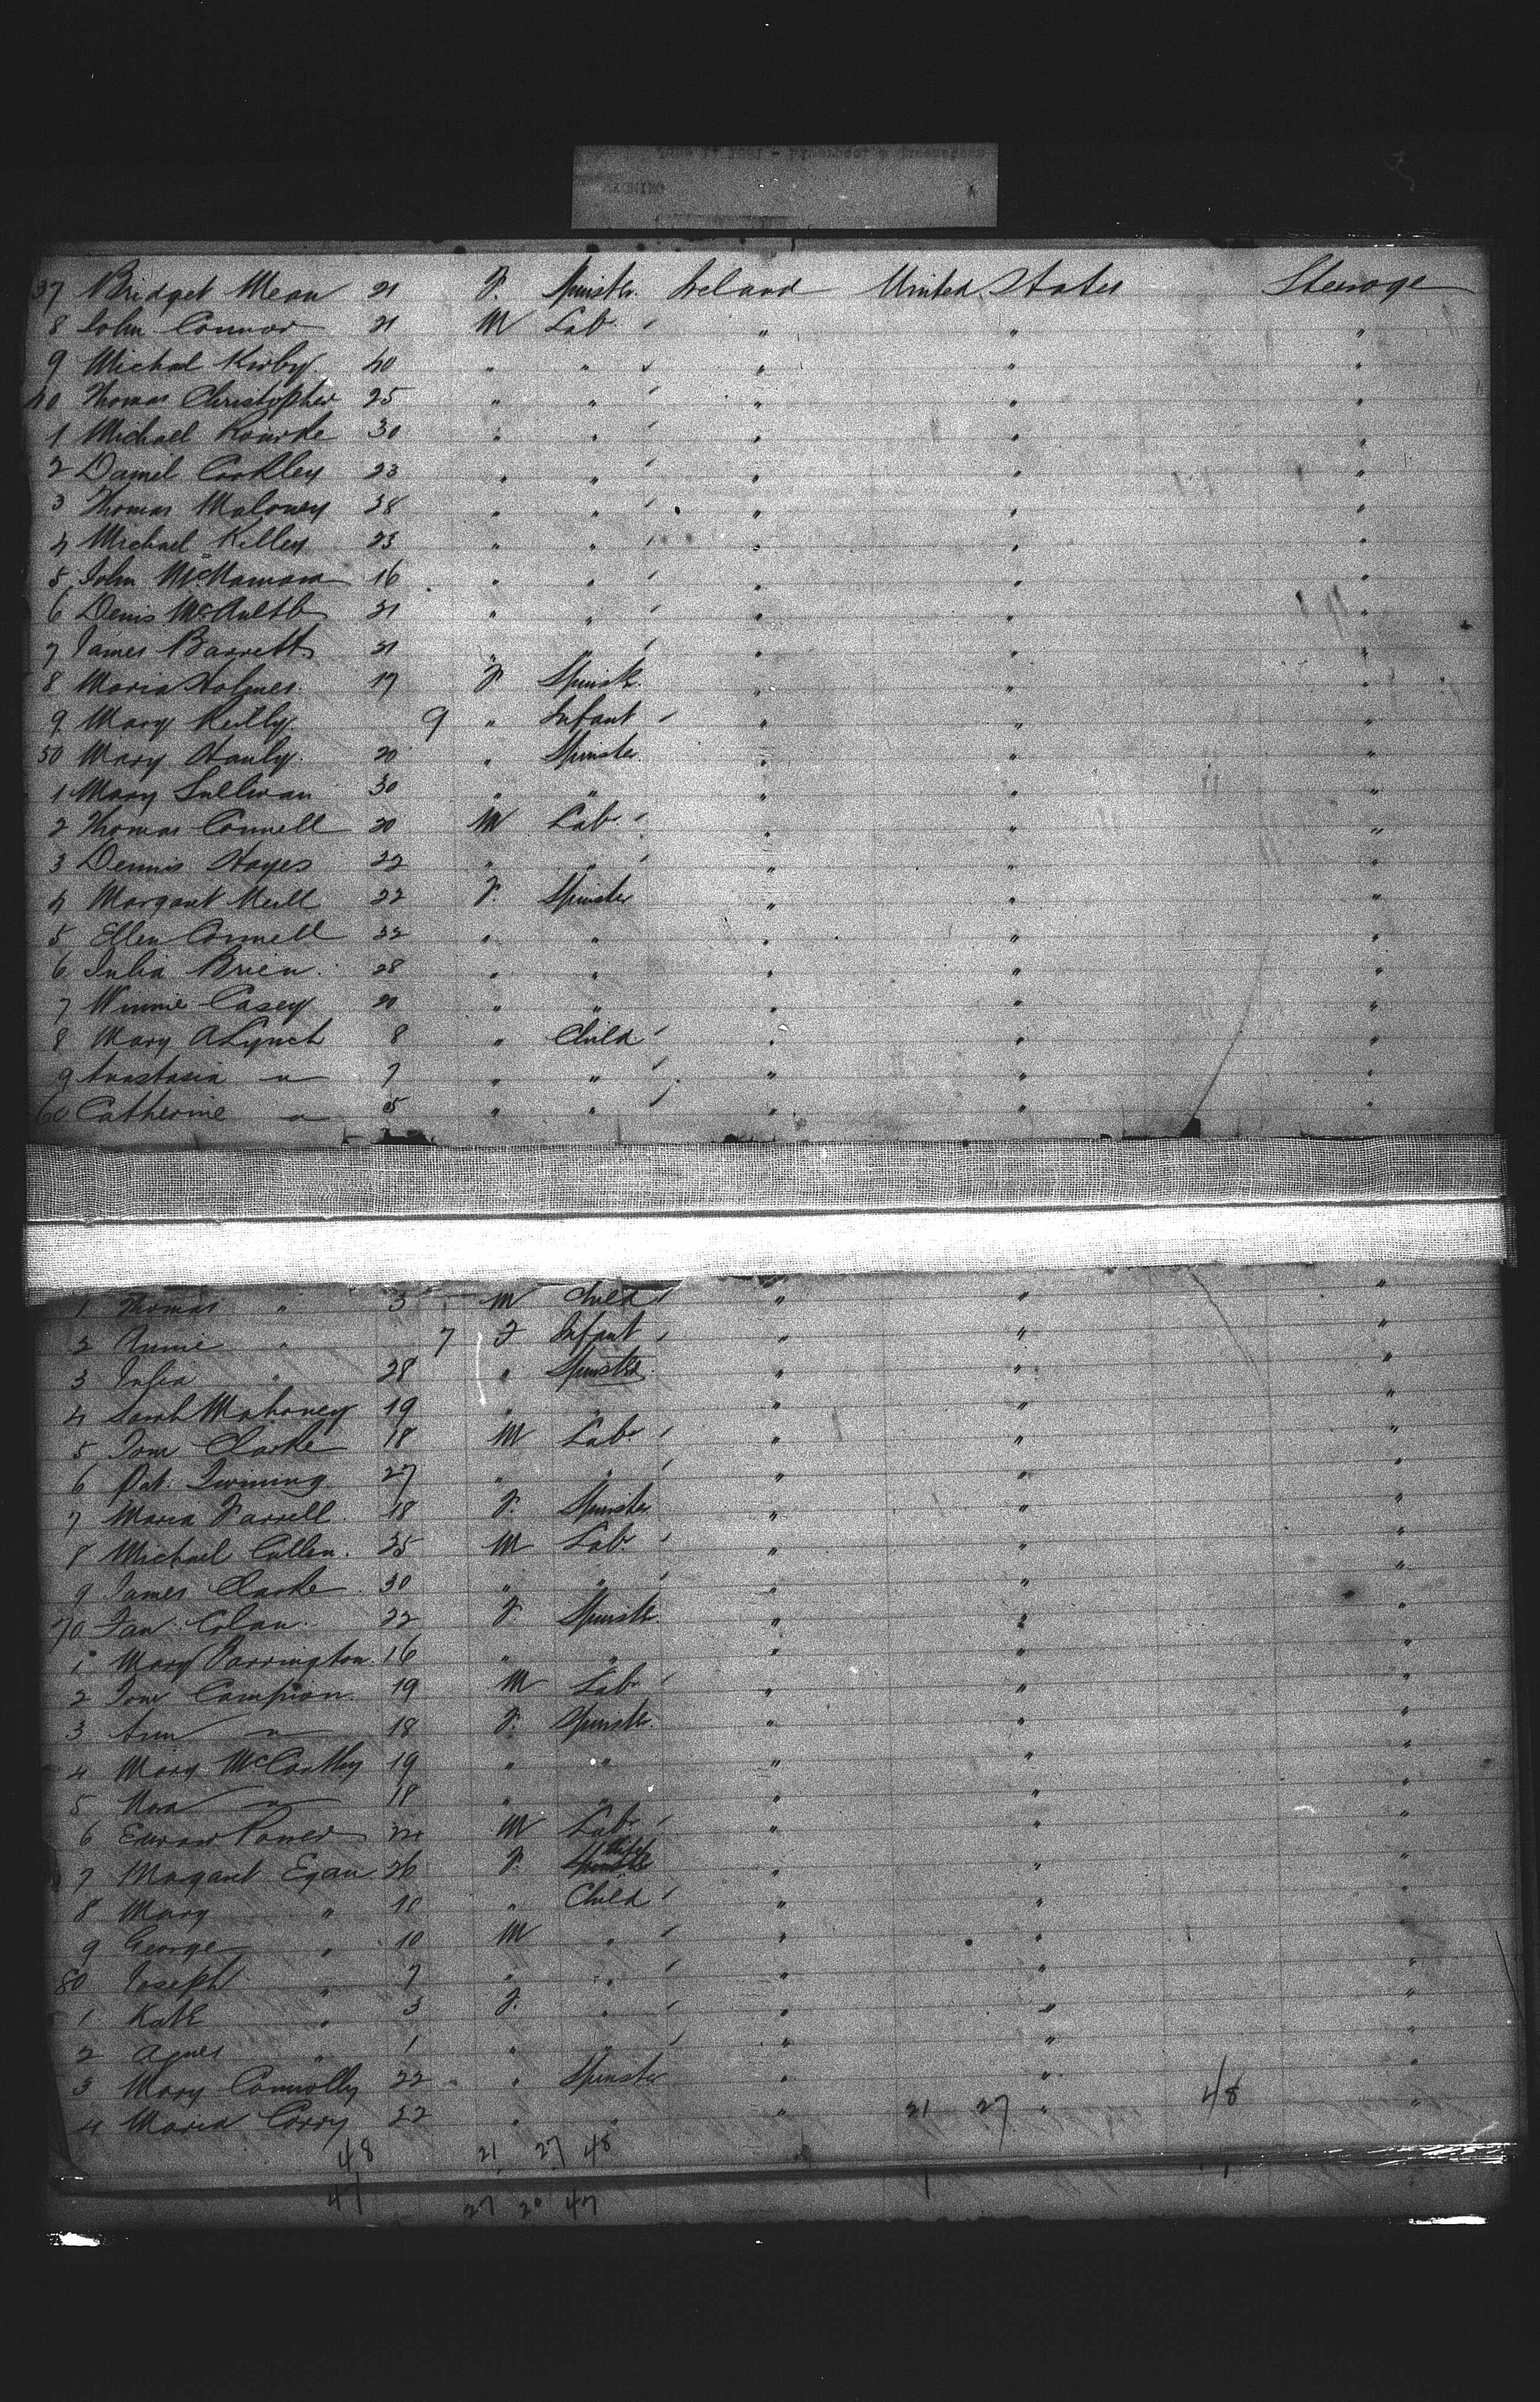 37 Bridget Mean 21 F. Spinster. Ireland United States Steerage
8 John Connor 21 M Lab. " " "
9 Michael Kirby 40 " " " " "
40 Thomas Christopher 25 " " " " "
1 Michael Rourke 30 " " " " "
2 Daniel Coakley 23 " " " " "
3 Thomas Maloney 38 " " " " "
4 Michael Killey 23 " " " " "
5 John McNamara 16 " " " " "
6 Denis 21 " " " " "
7 James Barrett 21 " " " " "
8 Maria Holmes. 17 F Spinstr. " " "
9 Mary Reilly. 9 " Infant " " "
50 Mary Hanly. 20 " Spinster. " " "
1 Mary Sullivan 30 " " " " "
2 Thomas Connell 20 M Lab " " "
3 Dennis Hayes 22 " " " " "
4 Margaret Neill 22 F. Spinster " " "
5 Ellen Connell 32 " " " " "
6 Julia Brien. 28 " " " " "
7 Winnie Casey 20 " " " " "
8 Mary A Lynch 8 " Child " " "
9 Anastasia " 7 " " " " "
60 Catherine " 5 " " " " "
1 Thomas " 3 M Child " " "
2 Annie " 7 F Infant " " "
3 Julia " 28 " Spinster. " " "
4 Sarah Mahoney 19 " " " " "
5 Tom Clarke 18 M Lab. " " "
6 Pat. 27 " " " " "
7 Maria Farrell. 18 F. Spinster. " " "
8 Michael Cullen. 35 M Lab. " " "
9 James Clarke 30 " " " " "
70 Colan. 22 F Spinstr. " " "
1 Mary Farrington. 16 " " " " "
2 Tom Campion. 19 M Lab " " "
3 Ann " 18 F. Spinster. " " "
4 Mary McCarthy 19 " " " " "
5 Nora " 18 " " " " "
6 Edward Power M Lab. " " "
7 Magaret Egan. 36 F. Spinster Wife " " "
8 Mary " 10 " Child " " "
9 George " 10 M " " " "
80 Joseph " 7 " " " " "
1. Kate " 3 F. " " " "
2 Agnes " 1 " " " " "
3 Mary Connolly 22 " Spinster " " "
4 Maria Corry 22 " " " 21 27 " 48 "
48 21 27 48
47 27 20 47